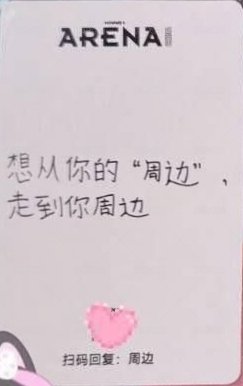 ARENA
想从你的“周边”，
走到你周边
扫码回复：周边